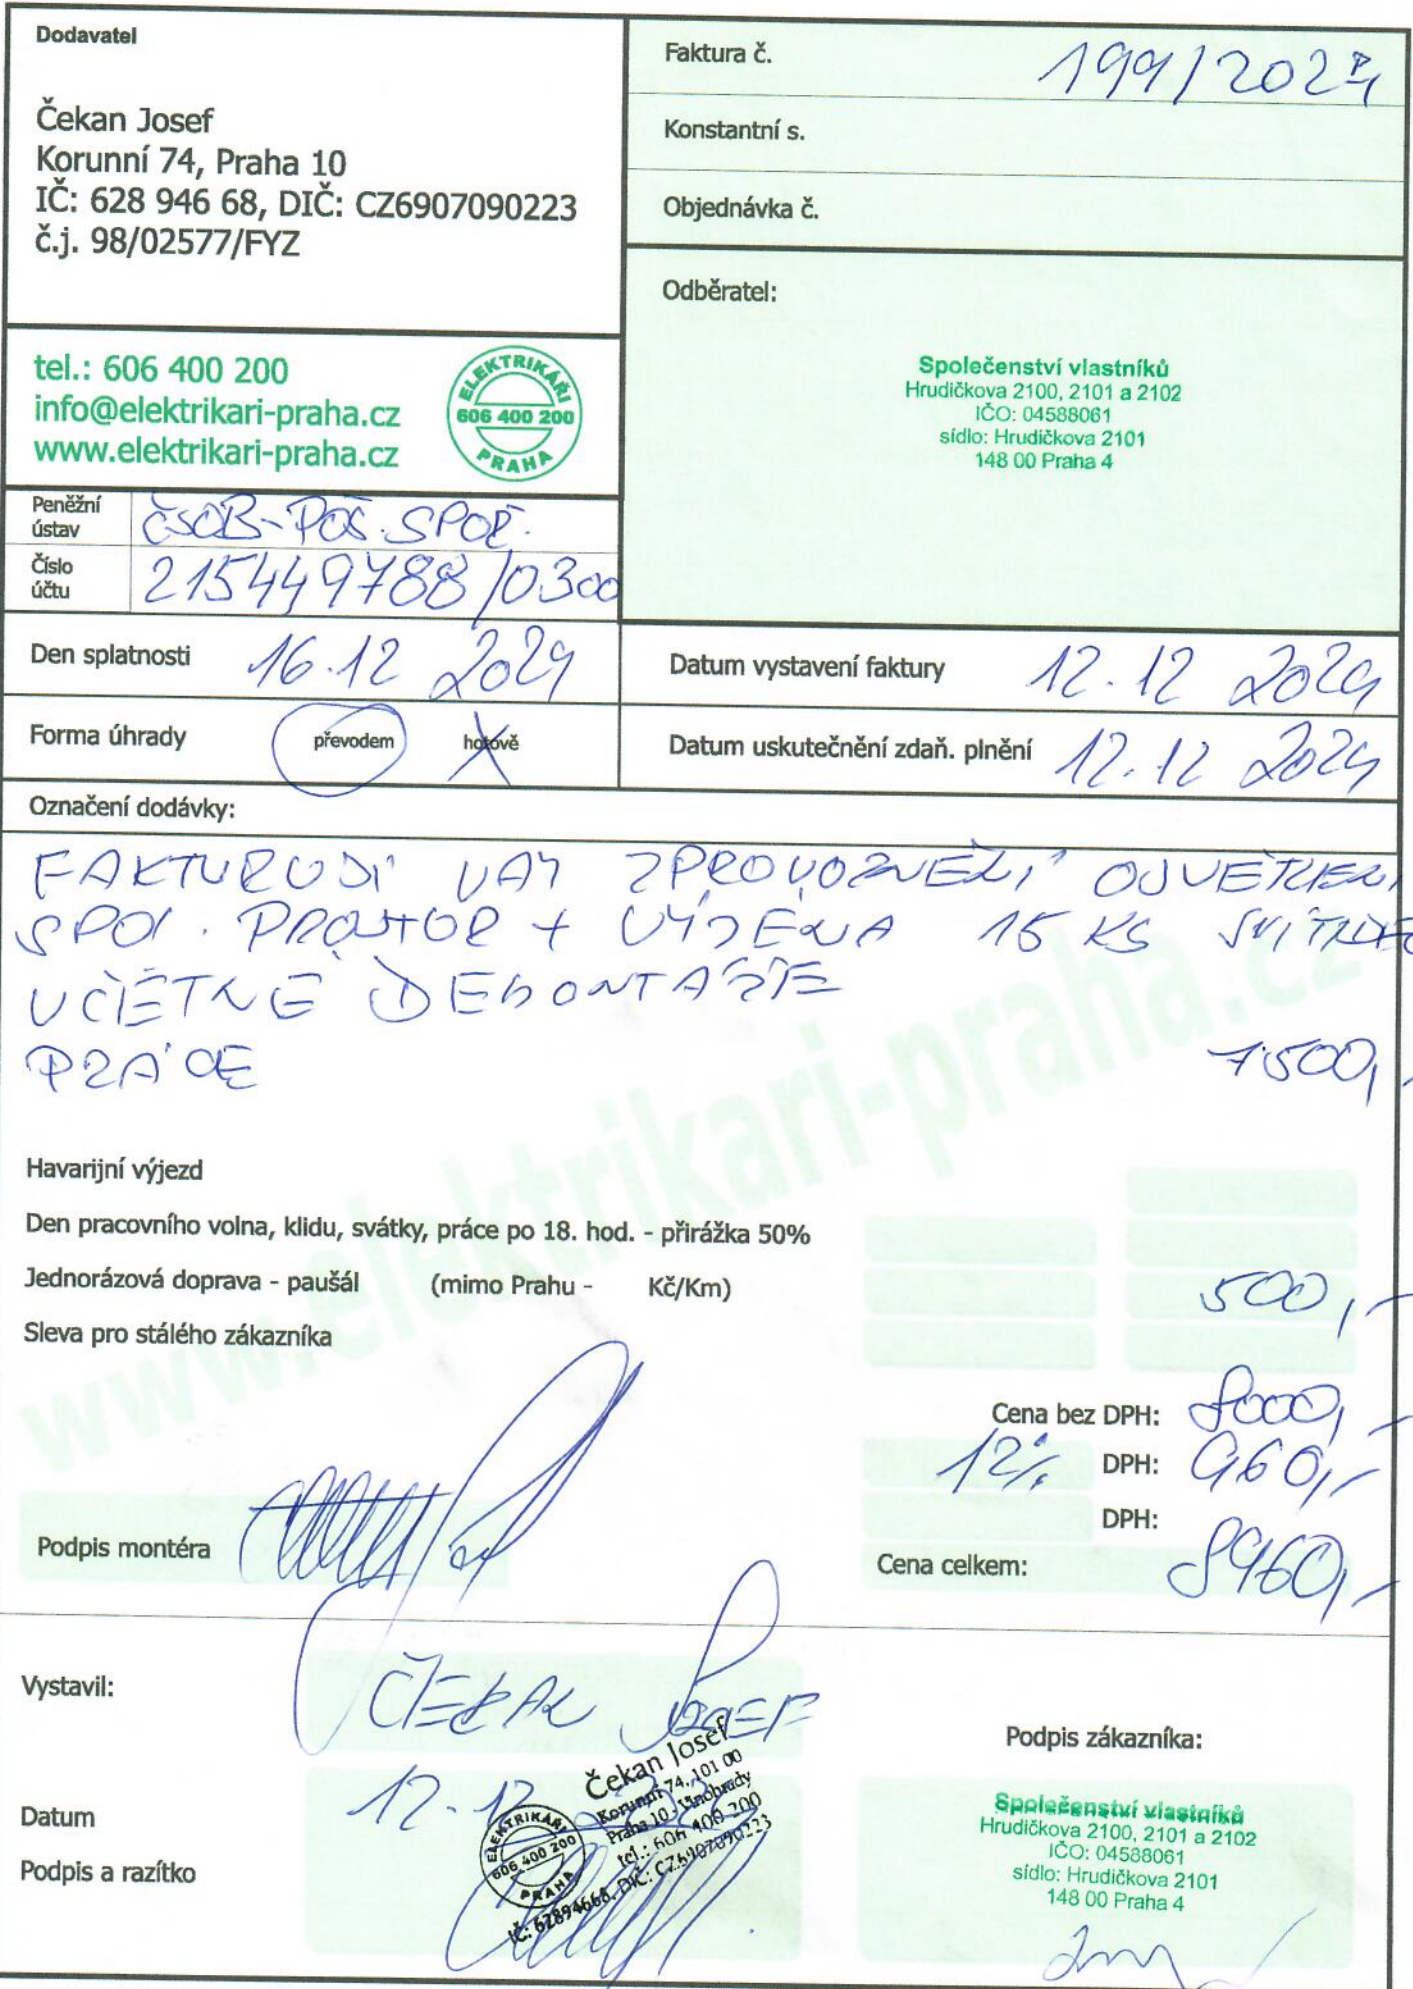 Dodavatel
Čekan Josef
Korunní 74, Praha 10
IČ: 628 946 68, DIČ: CZ6907090223
č.j. 98/02577/FYZ
tel.: 606 400 200
info@elektrikari-praha.cz
www.elektrikari-praha.cz
ELEKTRIKÁŘI
606 400 200
PRAHA
Peněžní ústav ČSOB-POŠ. SPOŘ.
Číslo účtu 215449788/0300
Faktura č. 199/2024
Konstantní s.
Objednávka č.
Odběratel:
Společenství vlastníků
Hrudičkova 2100, 2101 a 2102
IČO: 04588061
sídlo: Hrudičkova 2101
148 00 Praha 4
Den splatnosti 16.12 2024
Datum vystavení faktury 12.12 2024
Forma úhrady převodem hotově
Datum uskutečnění zdaň. plnění 12.12 2024
Označení dodávky:
FAKTURUJI VÁM ZPROVOZNĚNÍ OSVĚTLENÍ
SPOL. PROSTOR + VÝMĚNA 15 KS SVÍTIDEL
VČETNĚ DEMONTÁŽE
PRÁCE 7500,-
Havarijní výjezd
Den pracovního volna, klidu, svátky, práce po 18. hod. - přirážka 50%
Jednorázová doprava - paušál (mimo Prahu - Kč/Km) 500,-
Sleva pro stálého zákazníka
www.elektrikari-praha.cz
Cena bez DPH: 8000,-
12% DPH: 960,-
DPH:
Podpis montéra
Cena celkem: 8960,-
Vystavil: ČEKAN JOSEF
Podpis zákazníka:
Datum 12.12
Podpis a razítko
Čekan Josef
Korunní 74, 101 00
Praha 10 - Vinohrady
tel.: 606 400 200
IČ: 62894668, DIČ: CZ6907090223
ELEKTRIKÁŘI
606 400 200
PRAHA
Společenství vlastníků
Hrudičkova 2100, 2101 a 2102
IČO: 04588061
sídlo: Hrudičkova 2101
148 00 Praha 4